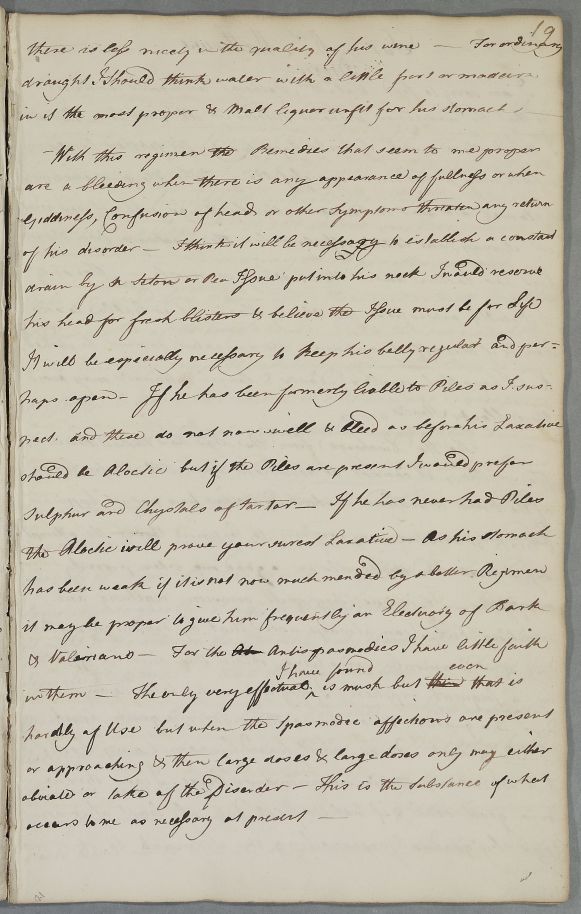 19
there is less nicety in the quality of his wine — For ordinary
draught I should think water with a little port or madeira
in it the most proper & Malt liquor unfit for his stomach.
— With this regimen the Remedies that seem to me proper
are a bleeding when there is any appearance of fullness or when
Giddiness, Confusion of head or other symptoms threaten any return
of his disorder — I think it will be necessary to establish a constant
drain by a Seton or Pea Issue put into his neck I would reserve
his head for fresh blisters & believe the Issue must be for Life
It will be especially necessary to keep his belly regular and per=
haps open — If he has been formerly liable to Piles as I sus-
pect. and these do not now swell & bleed as before his Laxative
should be Aloetic but if the Piles are present I would prefer
Sulphur and Chystals of tartar — If he has never had Piles
the Aloetic will prove your surest Laxative — As his stomach
has been weak if it is not now much mended by a better Regimen
it may be proper to give him frequently an Electuary of Bark
& Valeriano — For the Antispasmodics I have little faith
in them — The only very effectual I have found is musk but even that is
hardly of Use but when the Spasmodic affections are present
or approaching & then large doses & large doses only may either
obviate or take of the Disorder — This is the Substance of what
occurs to me as necessary at present —